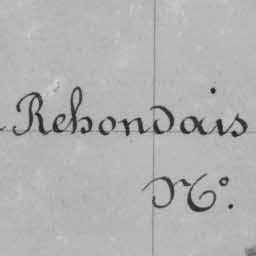 Rehondais
N°.